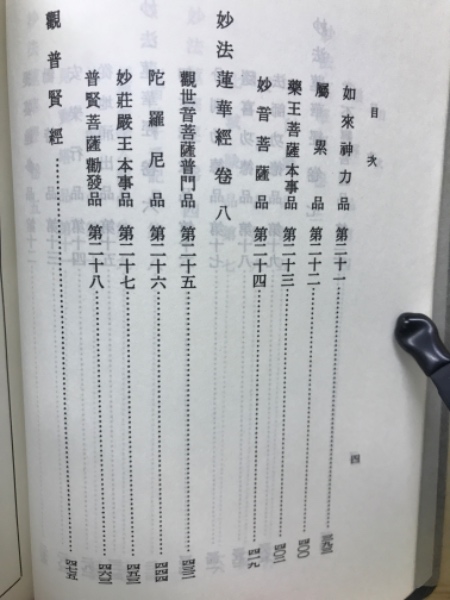 目次
如來神力品 第二十一
屬累品 第二十二 四〇〇
藥王菩薩本事品 第二十三
妙音菩薩品 第二十四 四一九
妙法蓮華經 卷八
觀世音菩薩普門品 第二十五
陀羅尼品 第二十六 四四四
妙莊嚴王本事品 第二十七
普賢菩薩勸發品 第二十八
觀普賢經 四七五
四